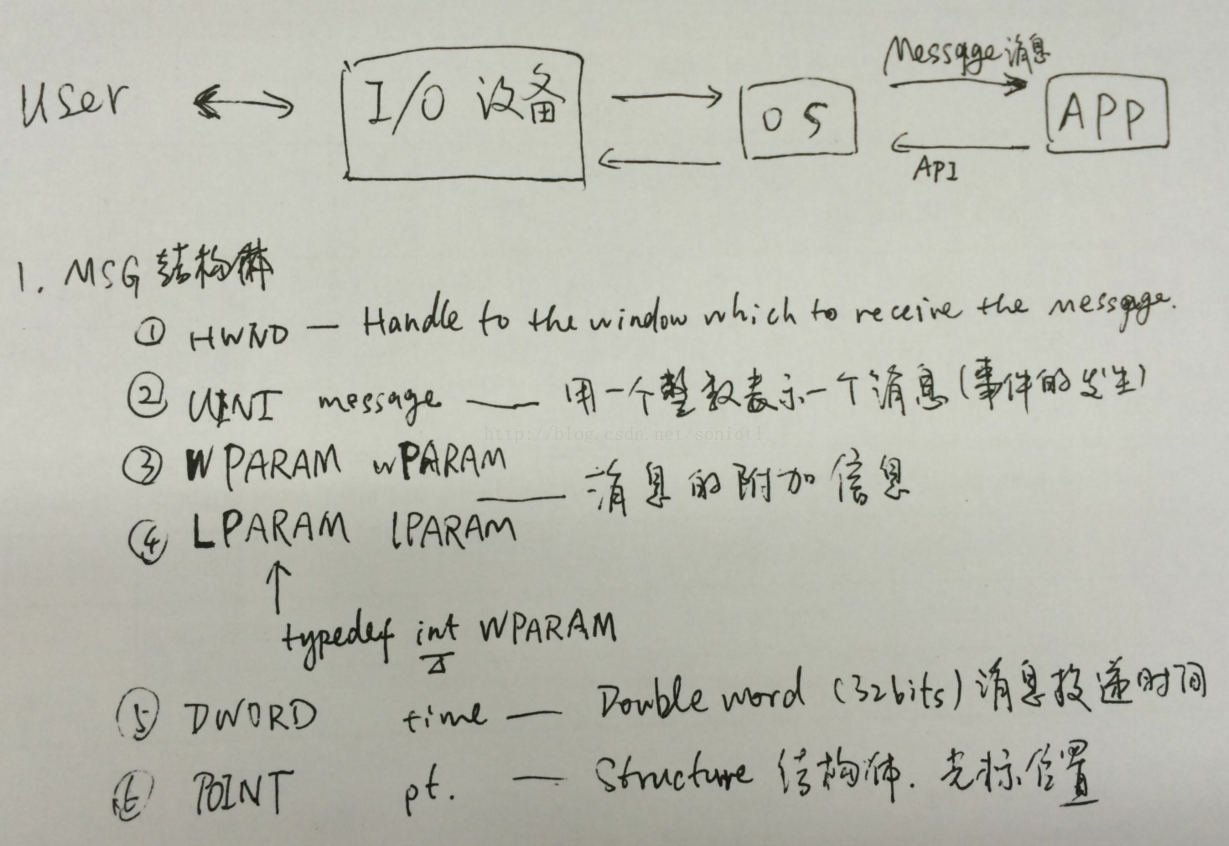 Message 消息
User I/O 设备 OS APP
API
1. MSG 结构体
① HWND — Handle to the window which to receive the message.
② UINI message — 用一个整数表示一个消息(事件的发生)
http://blog.csdn.net/soniotl
③ WPARAM wPARAM
— 消息的附加信息
④ LPARAM lPARAM
typedef int WPARAM
⑤ DWORD time — Double word (32bits) 消息投递时间
⑥ POINT pt. — Structure 结构体. 光标位置